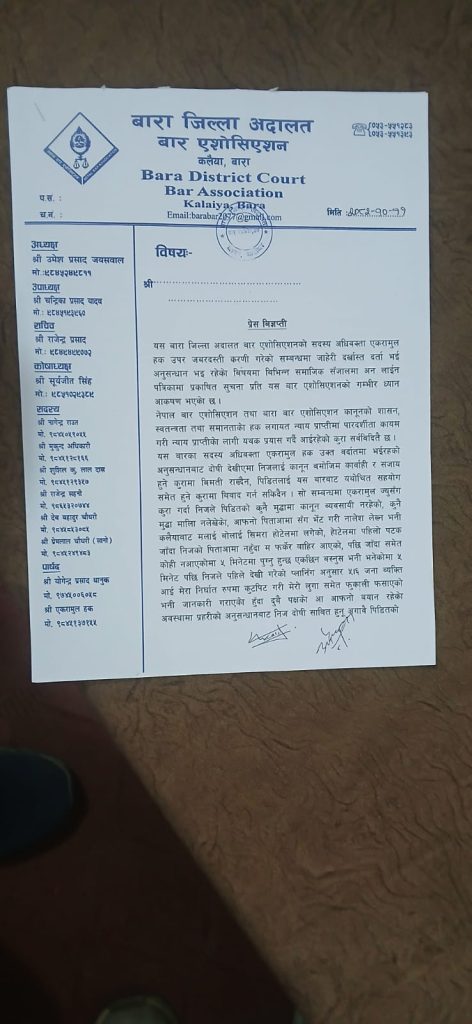 बारा जिल्ला अदालत
बार एशोसिएशन
कलैया, बारा
Bara District Court
Bar Association
Kalaiya, Bara
Email:barabar2077@gmail.com
०५३-५५१२८३
०५३-५५१३५३
प.स. :
च.न. :
मिति :२०८१-१०-११
अध्यक्ष
श्री उमेश प्रसाद जयसवाल
मो.:९८४५२४९८११
उपाध्यक्ष
श्री चन्द्रिका प्रसाद यादव
सचिव
श्री राजेन्द्र प्रसाद
कोषाध्यक्ष
श्री सुर्यजीत सिंह
सदस्य
श्री नागेन्द्र राउत
श्री मुकुन्द अधिकारी
श्री शुशिल कु. लाल दास
श्री राजेन्द्र सहनी
श्री देव बहादुर चौधरी
श्री प्रेमलाल चौधरी (सानो)
पार्षद
श्री योगेन्द्र प्रसाद धानुक
मो. ९७४५००६०५८
श्री एकरामुल हक
मो. ९८४५१३०१५५
विषयः-
श्री
प्रेस विज्ञप्ती
यस बारा जिल्ला अदालत बार एशोसिएशनको सदस्य अधिवक्ता एकरामुल
हक उपर जबरदस्ती करणी गरेको सम्बन्धमा जाहेरी दर्खास्त दर्ता भई
अनुसन्धान भइ रहेको बिषयमा विभिन्न समाजिक संजालमा अन लाईन
पत्रिकामा प्रकाषित सुचना प्रति यस बार एशोसिएशनको गम्भीर ध्यान
आकर्षण भएको छ ।
नेपाल बार एशोसिएशन तथा बारा बार एशोसिएशन कानूनको शासन,
स्वतन्त्रता तथा समानताको हक लगायत न्याय प्राप्तीमा पारदर्शीता कायम
गरी न्याय प्राप्तीको लागी यथक प्रयास गर्दै आईरहेको कुरा सर्वबिदितै छ ।
यस बारका सदस्य अधिवक्ता एकरामुल हक उक्त वर्दातमा भईरहको
अनुसन्धानबाट दोषी देखीएमा निजलाई कानून बमोजिम कार्वाही र सजाय
हुने कुरामा बिमती राख्दैन, पिडितलाई यस बारबाट यथोचित सहयोग
समेत हुने कुरामा विवाद गर्न सकिदैन । सो सम्बन्धमा एकरामुल ज्युसँग
कुरा गर्दा निजले पिडितको कुनै मुद्धामा कानून ब्यवसायी नरहेको, कुनै
मुद्धा मामिला नलेखेको, आफनो पिताआमा संग भेंट गरी नालेश लेख्न भनी
कलैयाबाट मलाई बोलाई सिमरा होटेलमा लगेको, होटेलमा पहिलो पटक
जाँदा निजको पिताआमा नहुँदा म फर्केर बाहिर आएको, पछि जाँदा समेत
कोही नआएकोमा ५ मिनेटमा पुग्नु हुन्छ एकछिन बस्नुस भनी भनेकोमा ५
मिनेट पछि निजले पहिले देखी गरेको प्लानिंग अनुसार ५।६ जना ब्यक्ति
आई मेरा निर्घात रुपमा कुटपिट गरी मेरो लुगा समेत फुकाली फसाएको
भनी जानकारी गराएको हुँदा दुवै पक्षको आ आफनो बयान रहेको
अवस्थामा प्रहरीको अनुसन्धानबाट निज दोषी साबित हुनु अगावै पिडितको